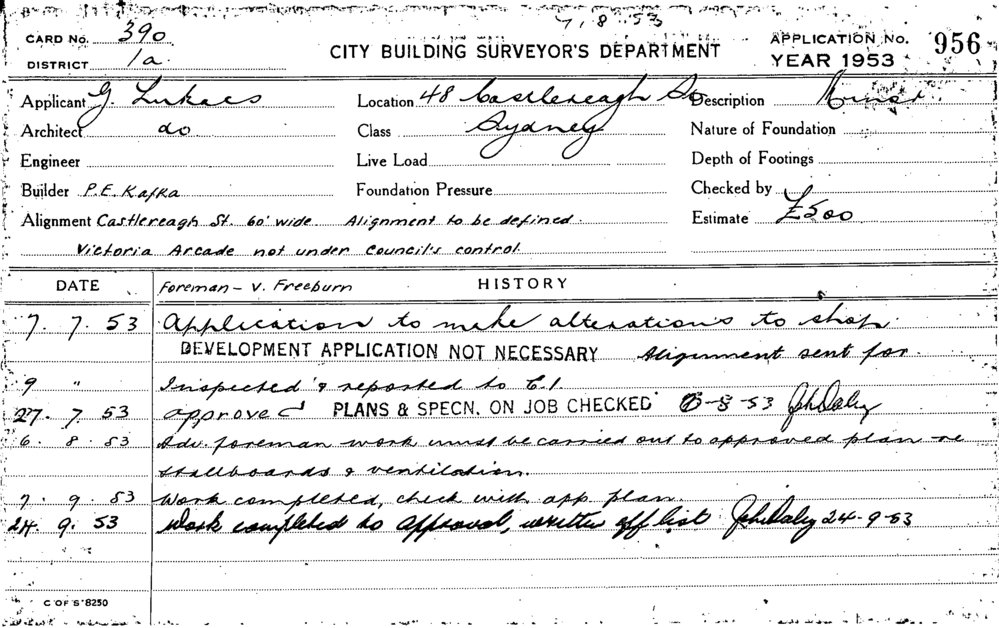 7. 8. 53
CARD No. 390
DISTRICT 1a.
CITY BUILDING SURVEYOR'S DEPARTMENT
APPLICATION No. 956
YEAR 1953
Applicant G. Lukacs
Location 48 Castlereagh St
Description Minor.
Architect do
Class Sydney
Nature of Foundation
Engineer
Live Load
Depth of Footings
Builder P.E. Kafka
Foundation Pressure
Checked by
Alignment Castlereagh St. 60' wide. Alignment to be defined.
Estimate £500
Victoria Arcade not under Council's control.
DATE
Foreman - V. Freeburn
HISTORY
7. 7. 53 Application to make alterations to shop.
DEVELOPMENT APPLICATION NOT NECESSARY Alignment sent for.
9 " Inspected & reported to C.I.
27. 7. 53 approved PLANS & SPECN. ON JOB CHECKED 6-8-53 Jch Daley
6. 8. 53 Adv. foreman work must be carried out to approved plan re
stallboards & ventilation.
7. 9. 53 Work completed, check with app. plan.
24. 9. 53 Work completed to approval, written off list Jch Daley 24-9-53
C OF S 8250